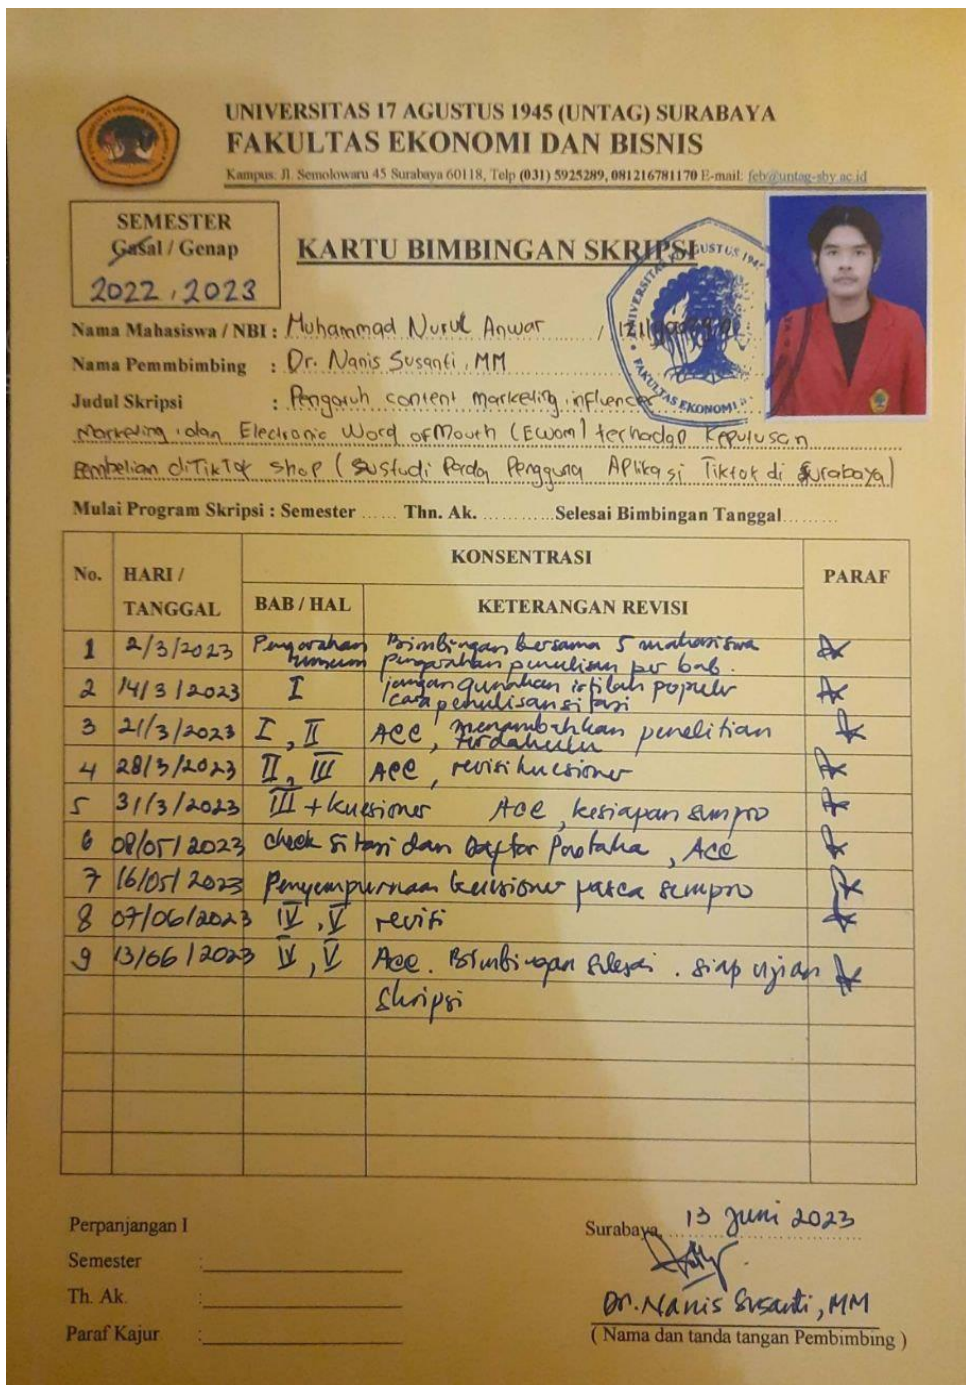 UNIVERSITAS 17 AGUSTUS 1945 (UNTAG) SURABAYA
FAKULTAS EKONOMI DAN BISNIS
Kampus: Jl. Semolowaru 45 Surabaya 60118, Telp (031) 5925289, 081216781170 E-mail: feb@untag-sby.ac.id
SEMESTER
Gasal / Genap
2022 , 2023
KARTU BIMBINGAN SKRIPSI
Nama Mahasiswa / NBI : Muhammad Nurul Anwar /
Nama Pemmbimbing : Dr. Nanis Susanti, MM
Judul Skripsi : Pengaruh content marketing, influencer
Marketing, dan Electronic Word of Mouth (EWom) terhadap Keputusan
Pembelian diTikTok shop ( Pada Pengguna Aplikasi Tiktok di Surabaya)
Mulai Program Skripsi : Semester ...... Thn. Ak. ............Selesai Bimbingan Tanggal.........
No. HARI / TANGGAL KONSENTRASI PARAF
BAB / HAL KETERANGAN REVISI
1 2/3/2023 Pengarahan umum Bimbingan bersama 5 mahasiswa
pengarahan penulisan per bab.
2 14/3/2023 I jangan gunakan istilah populer
cara penulisan sitasi
3 21/3/2023 I, II Acc, menambahkan penelitian
terdahulu
4 28/3/2023 II, III Acc, revisi kuesioner
5 31/3/2023 III + kuesioner Acc, kesiapan sempro
6 08/05/2023 check sitasi dan Daftar Pustaka, Acc
7 16/05/2023 Penyempurnaan kuesioner pasca sempro
8 07/06/2023 IV, V revisi
9 13/06/2023 IV, V Acc. Bimbingan selesai. siap ujian
skripsi
Perpanjangan I
Semester :
Th. Ak. :
Paraf Kajur :
Surabaya, 13 Juni 2023
Dr. Nanis Susanti, MM
( Nama dan tanda tangan Pembimbing )